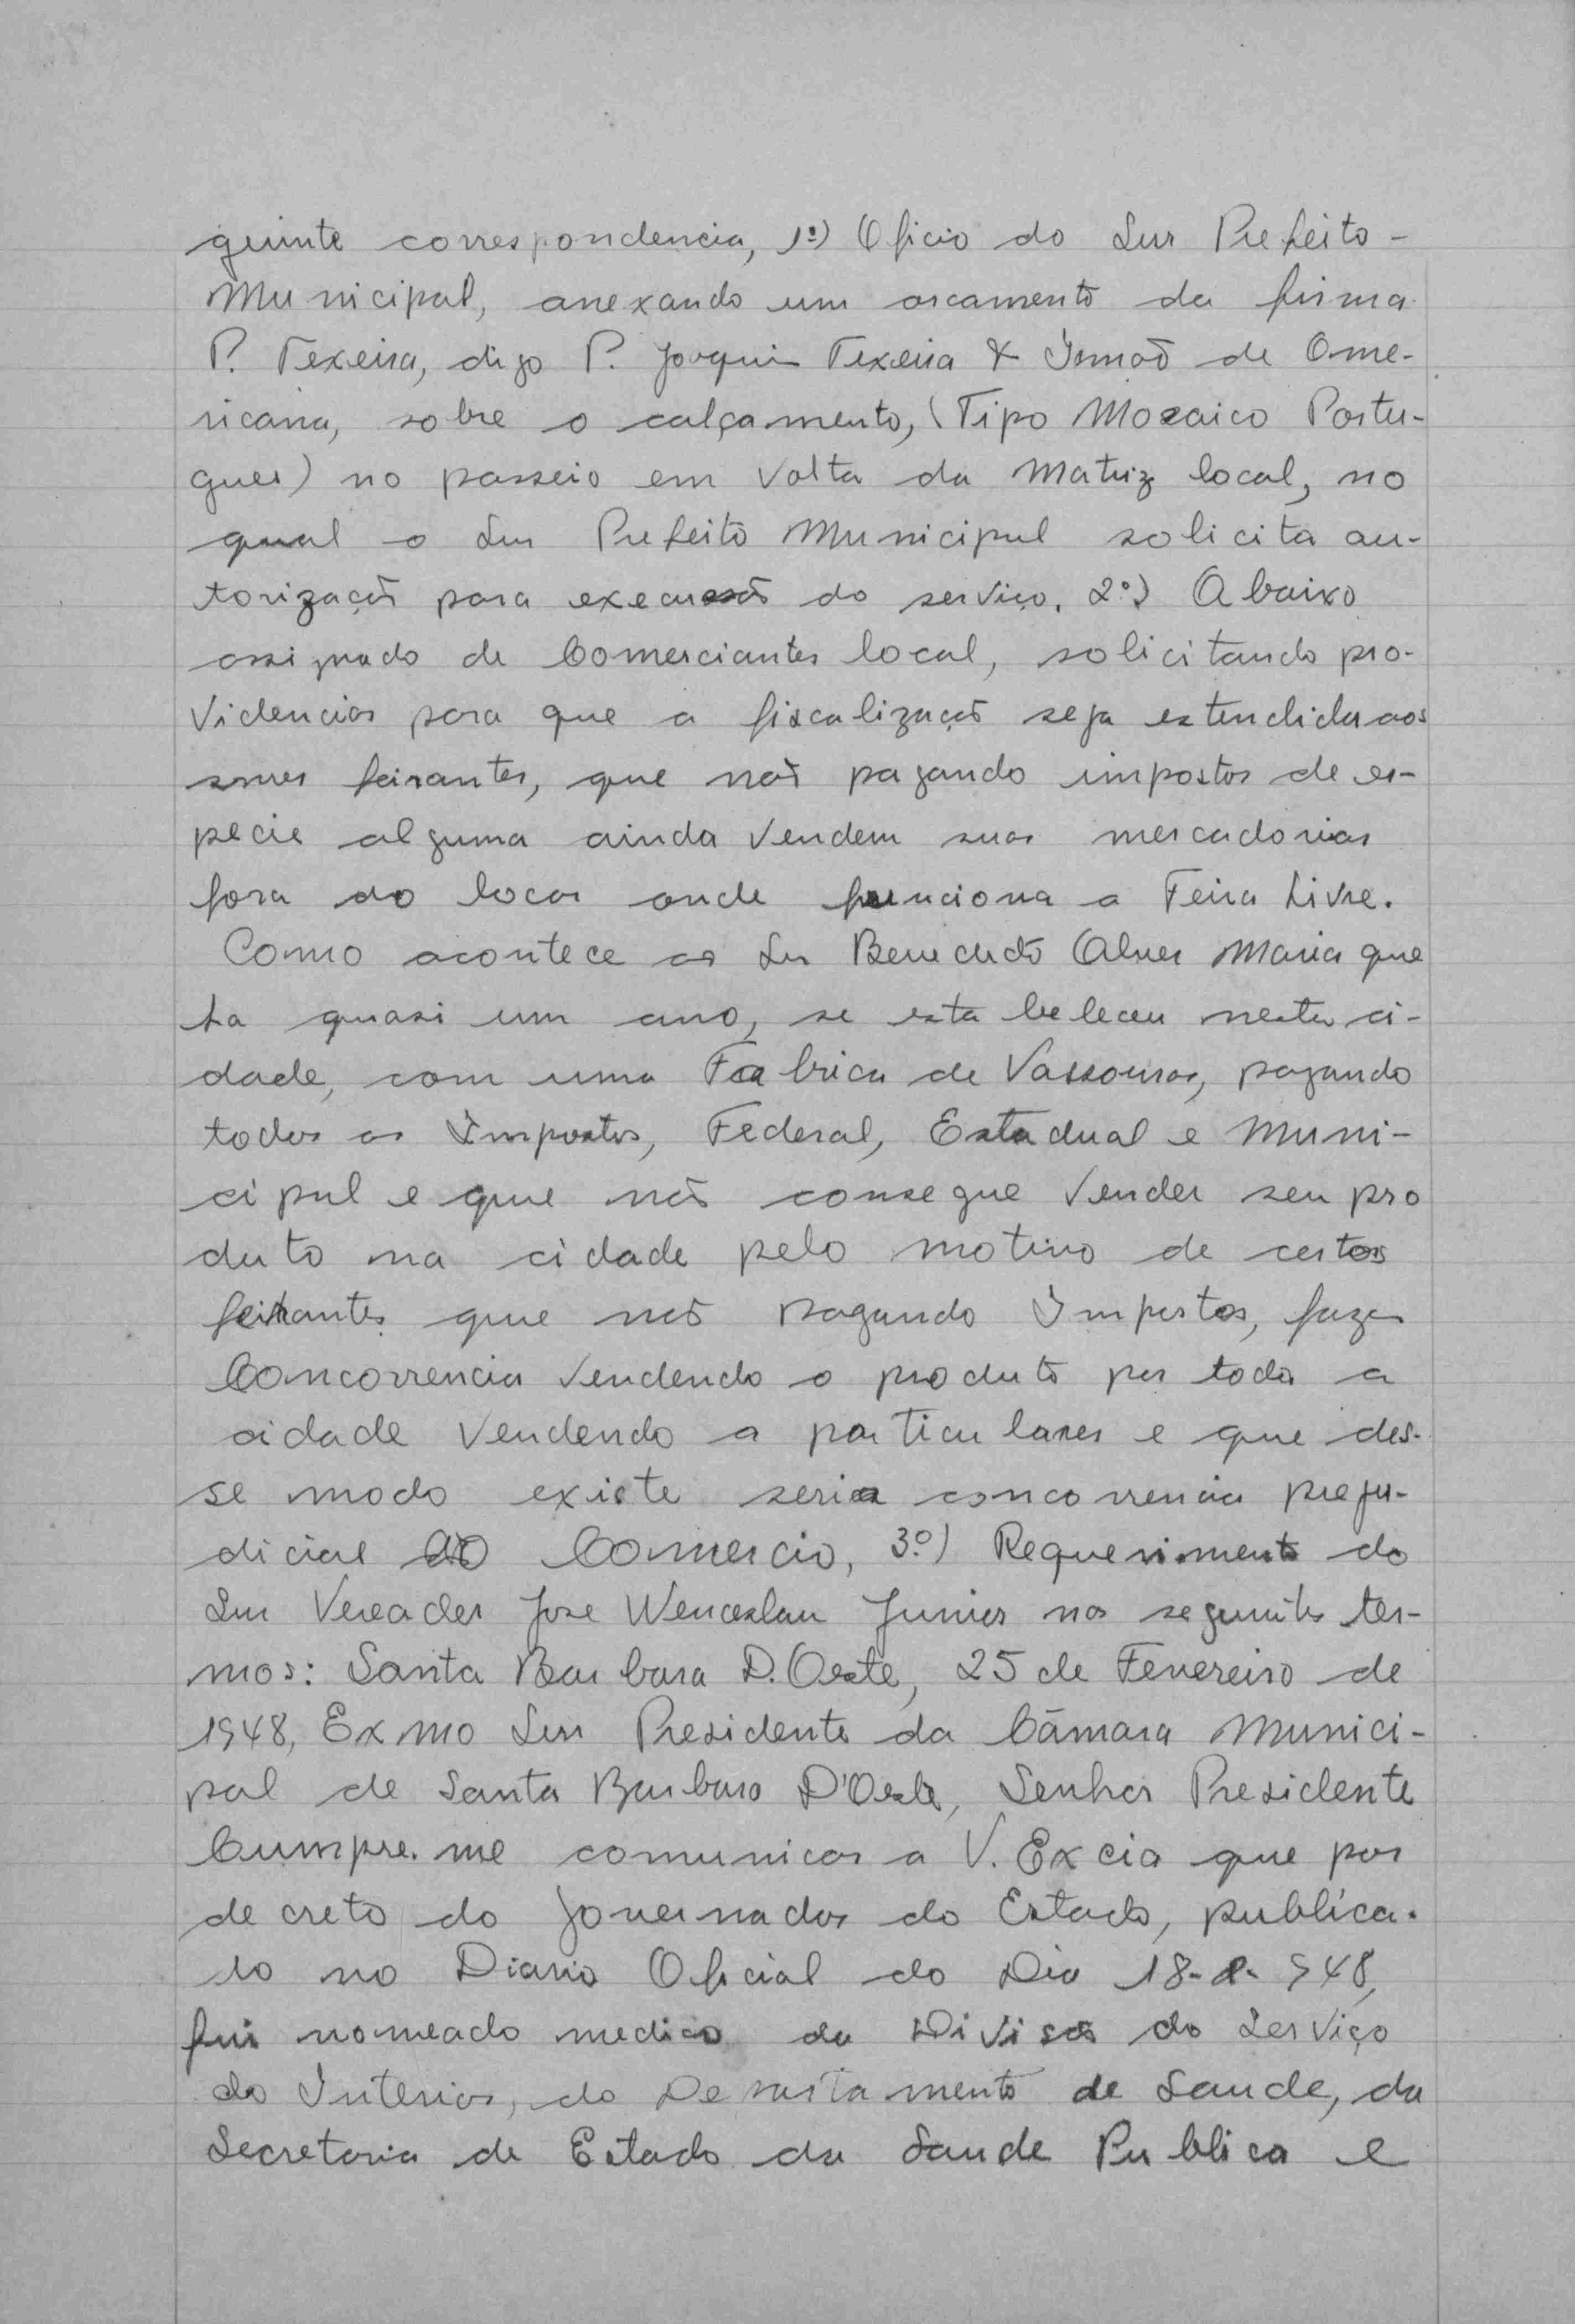 guinte correspondencia, 1º) Oficio do Snr Prefeito -
Municipal, anexando um orcamento da firma
P. Texeira, digo P. Joaquin Texeira & Irmaõ de Ame-
ricana, sobre o calçamento, (Tipo Mozaico Portu-
gues) no passeio em volta da Matriz local, no
qual o Snr Prefeito Municipal solicita au-
torizaçaõ para execussaõ do serviço. 2º) Abaixo
assignado de Comerciantes local, solicitando pro-
videncias para que a fiscalizaçaõ seja estendida aos
snres feirantes, que naõ pagando impostos de es-
pecie alguma ainda vendem suas mercadorias
fora do local onde funciona a Feira Livre.
Como acontece ao Snr Benedito Alves Maria que
ha quasi um ano, se estabeleceu nesta ci-
dade, com uma Fabrica de Vassouras, pagando
todos os Impostos, Federal, Estadual e Muni-
cipal e que naõ consegue vender seu pro
duto na cidade pelo motivo de certos
feirantes que naõ pagando Impostos, fazem
Concorrencia vendendo o produto por toda a
cidade vendendo a particulares e que des-
se modo existe seria concorrencia preju-
dicial ao Comercio, 3º) Requerimento do
Snr Vereador Jose Wenceslau Junior nos seguintes ter-
mos: Santa Barbara D. Oeste, 25 de Fevereiro de
1948, Exmo Snr Presidente da Câmara Munici-
pal de Santa Barbara D'Oeste, Senhor Presidente
Cumpre-me comunicar a V. Excia que por
decreto do Governador do Estado, publica-
do no Diario Oficial do Dia 18-2-948,
fui nomeado medico da Divisaõ do Serviço
do Interior, do Departamento de Saude, da
Secretaria de Estado da Saude Publica e